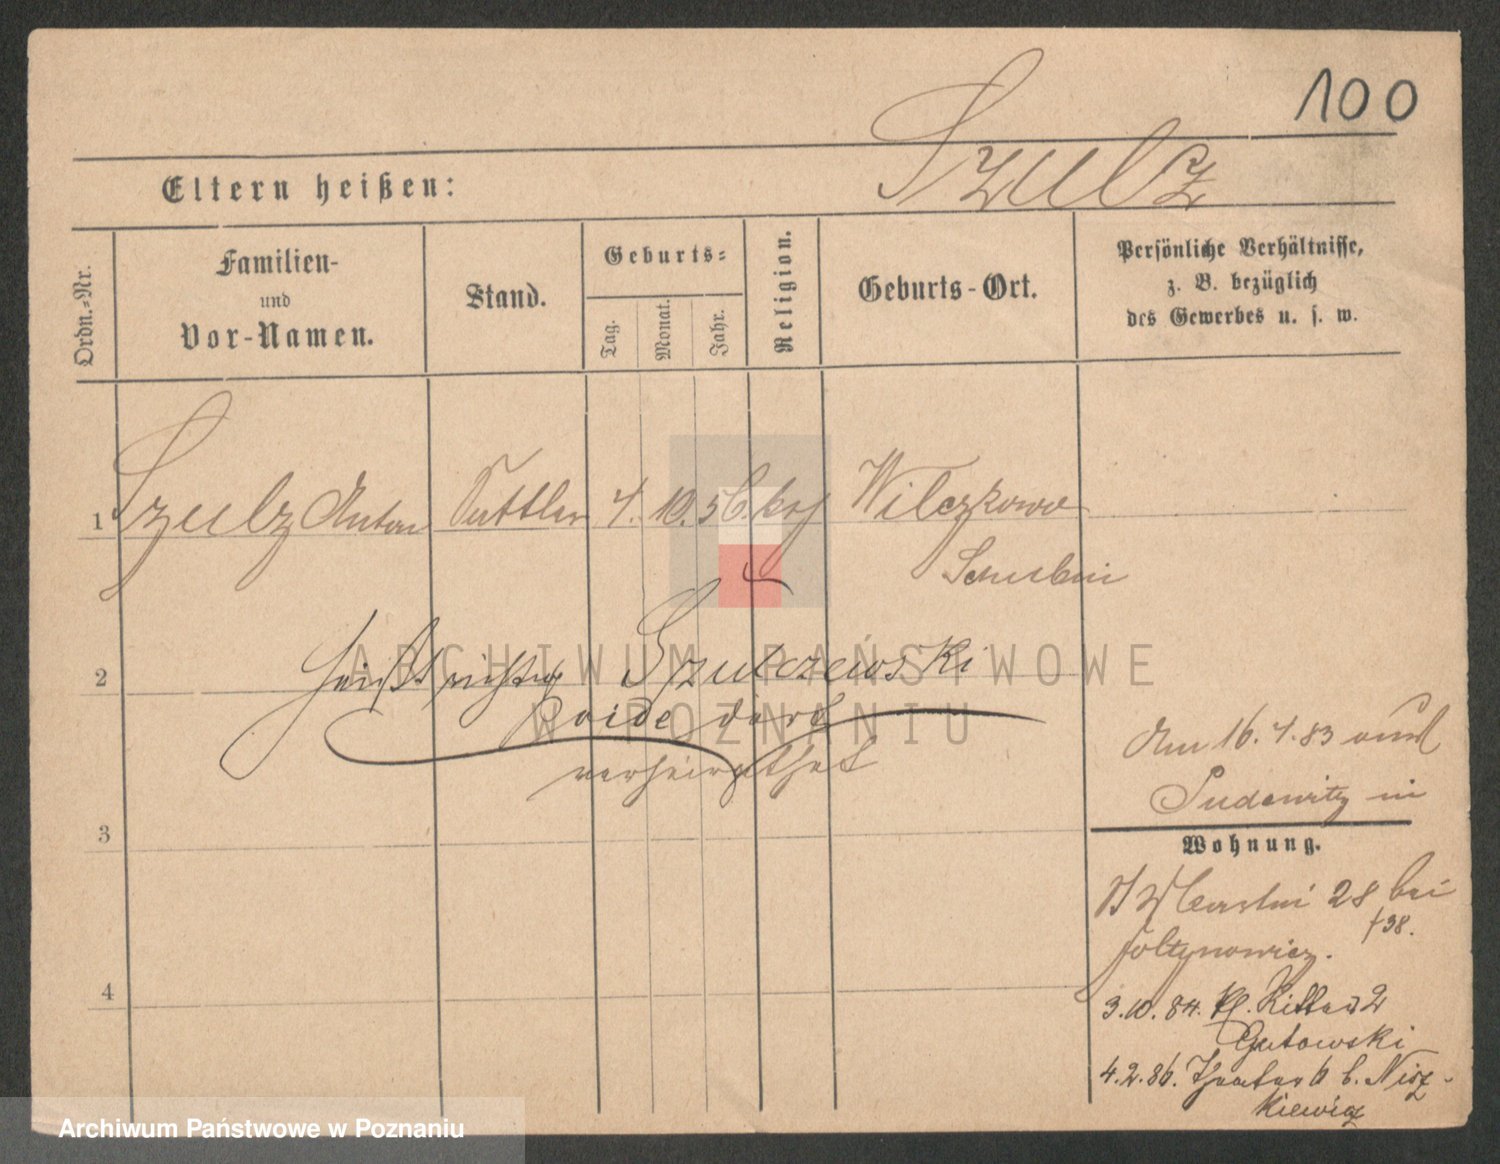 100
Szulz
Eltern heißen:
Ordn.-Nr.
Familien-
und
Vor-Namen.
Stand.
Geburts-
Tag.
Monat.
Jahr.
Religion.
Geburts-Ort.
Persönliche Verhältnisse,
z. B. bezüglich
des Gewerbes u. s. w.
1 Szulz Anton Sattler 4. 10. 56. kath Wilczkowo
Schubin
2 heißt richtig Szulczewski
verheirathet
Am 16. 4. 83 aus
Pudewitz in
3
Wohnung.
St Martin 28 bei
Foltynowicz. f38.
4
3.10.84. Kl. Ritter 2
Gutowski
4.2.86. Theater 6 b. Nisz-
kiewicz
ARCHIWUM PAŃSTWOWE
W POZNANIU
Archiwum Państwowe w Poznaniu